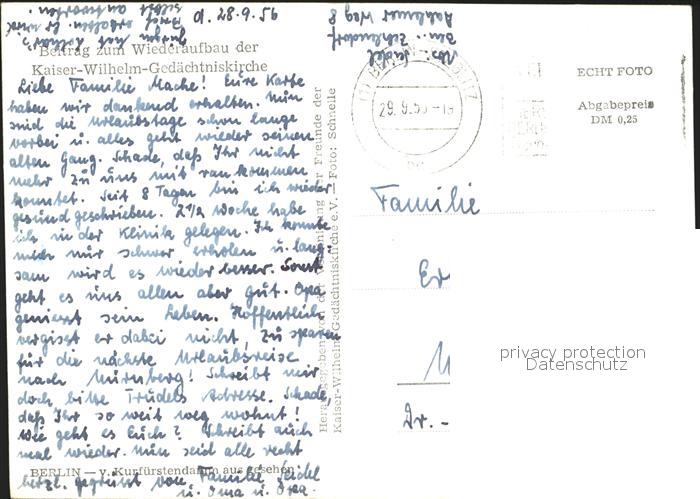 d. 28.9.56
Jürgen hat Lothar's
Brief erhalten. Er wird
selbst antworten.
Abs.: Seidel
Bln.-Zehlendorf
Weg 8
Beitrag zum Wiederaufbau der
Kaiser-Wilhelm-Gedächtniskirche
Liebe Familie Mache! Eure Karte
haben wir dankend erhalten. Nun
sind die Urlaubstage schon lange
vorbei u. alles geht wieder seinen
alten Gang. Schade, daß Ihr nicht
mehr zu uns mit rankommen
konntet. Seit 8 Tagen bin ich wieder
gesund geschrieben. 2 1/2 Woche habe
ich in der Klinik gelegen. Ich konnte
mich nur schwer erholen u. lang-
sam wird es wieder besser. Sonst
geht es uns allen aber gut. Opa
geniesst sein Leben. Hoffentlich
vergisst er dabei nicht, zu sparen
für die nächste Urlaubsreise
nach Nürnberg! Schreibt mir
doch bitte Trudels Adresse. Schade,
daß Ihr so weit weg wohnt!
Wie geht es Euch? Schreibt auch
mal wieder. Nun seid alle recht
herzl. gegrüsst von Familie Seidel
u. Oma u. Opa.
BERLIN — v. Kurfürstendamm aus gesehen
Herausgegeben von der Vereinigung der Freunde der
Kaiser-Wilhelm-Gedächtniskirche e.V. — Foto: Schnelle
(1) BERLIN
29.9.56-19
ECHT FOTO
Abgabepreis
DM 0,25
Familie
Er
M
Dr.-
privacy protection
Datenschutz